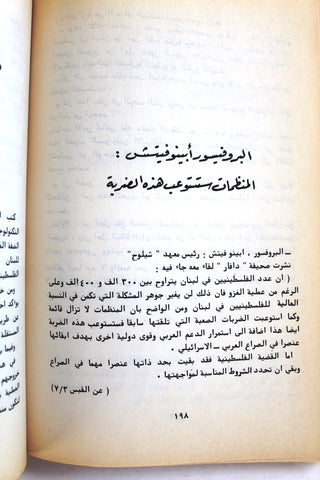 البروفيسور أبينوفيتش :
المنظمات ستستوعب هذه الضربة
ــ البروفسور ، ابينو فيتش : رئيس معهد " شيلوح "
نشرت صحيفة " دافار " لقاء معه جاء فيه :
( ان عدد الفلسطينيين في لبنان يتراوح بين ٣٠٠ الف و ٤٠٠ الف وعلى
الرغم من عملية الغزو فان ذلك لن يغير جوهر المشكلة التي تكمن في النسبة
العالية للفلسطينيين في لبنان ومن الواضح بان المنظمات لا تزال قائمة
وكما استوعبت الضربات الصعبة التي تلقتها سابقا فستستوعب هذه الضربة
ايضا هذا اضافة الى استمرار الدعم العربي وقوى دولية اخرى بهدف ابقائها
عنصرا في الصراع العربي ــ الاسرائيلي .
اما القضية الفلسطينية فقد بقيت بحد ذاتها عنصرا مهما في الصراع
وبقي ان تحدد الشروط المناسبة لمواجهتها . )
( عن القبس ٧/٣ )
١٩٨